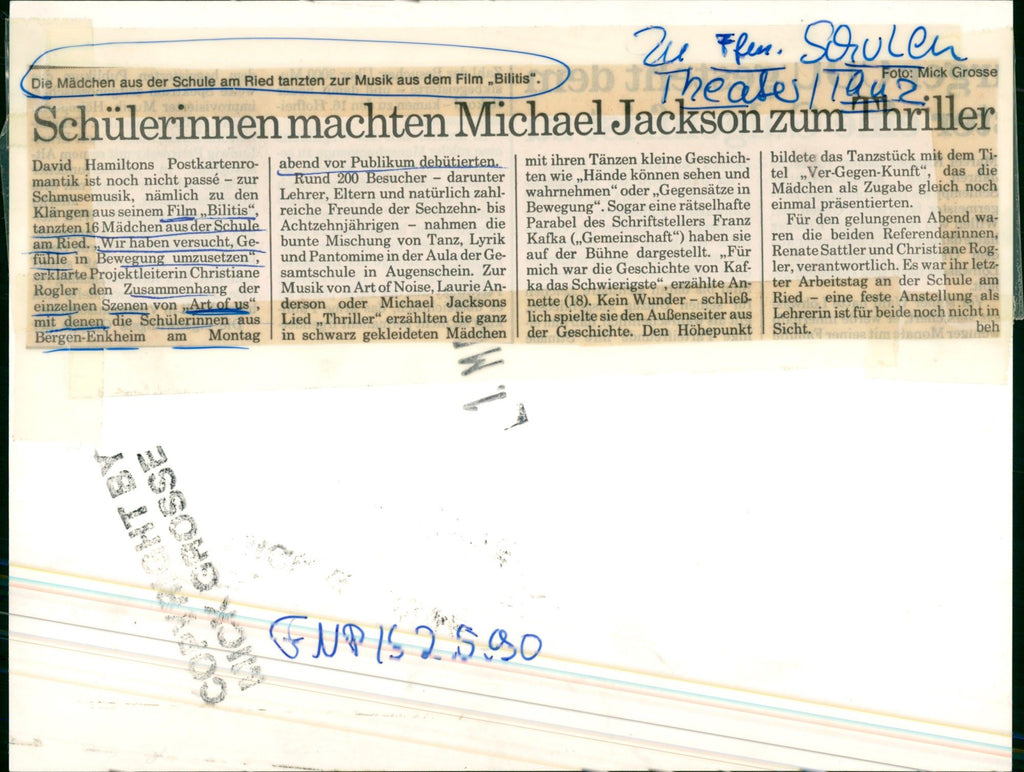 Zu Ffm. Schulen
Theater / Tanz
Die Mädchen aus der Schule am Ried tanzten zur Musik aus dem Film „Bilitis“.
Foto: Mick Grosse
Schülerinnen machten Michael Jackson zum Thriller
David Hamiltons Postkartenro-
mantik ist noch nicht passé – zur
Schmusemusik, nämlich zu den
Klängen aus seinem Film „Bilitis“,
tanzten 16 Mädchen aus der Schule
am Ried. „Wir haben versucht, Ge-
fühle in Bewegung umzusetzen“,
erklärte Projektleiterin Christiane
Rogler den Zusammenhang der
einzelnen Szenen von „Art of us“,
mit denen die Schülerinnen aus
Bergen-Enkheim am Montag
abend vor Publikum debütierten.
Rund 200 Besucher – darunter
Lehrer, Eltern und natürlich zahl-
reiche Freunde der Sechzehn- bis
Achtzehnjährigen – nahmen die
bunte Mischung von Tanz, Lyrik
und Pantomime in der Aula der Ge-
samtschule in Augenschein. Zur
Musik von Art of Noise, Laurie An-
derson oder Michael Jacksons
Lied „Thriller“ erzählten die ganz
in schwarz gekleideten Mädchen
mit ihren Tänzen kleine Geschich-
ten wie „Hände können sehen und
wahrnehmen“ oder „Gegensätze in
Bewegung“. Sogar eine rätselhafte
Parabel des Schriftstellers Franz
Kafka („Gemeinschaft“) haben sie
auf der Bühne dargestellt. „Für
mich war die Geschichte von Kaf-
ka das Schwierigste“, erzählte An-
nette (18). Kein Wunder – schließ-
lich spielte sie den Außenseiter aus
der Geschichte. Den Höhepunkt
bildete das Tanzstück mit dem Ti-
tel „Ver-Gegen-Kunft“, das die
Mädchen als Zugabe gleich noch
einmal präsentierten.
Für den gelungenen Abend wa-
ren die beiden Referendarinnen,
Renate Sattler und Christiane Rog-
ler, verantwortlich. Es war ihr letz-
ter Arbeitstag an der Schule am
Ried – eine feste Anstellung als
Lehrerin ist für beide noch nicht in
Sicht. beh
COPYRIGHT BY
MICK GROSSE
FNP/S 2.5.90